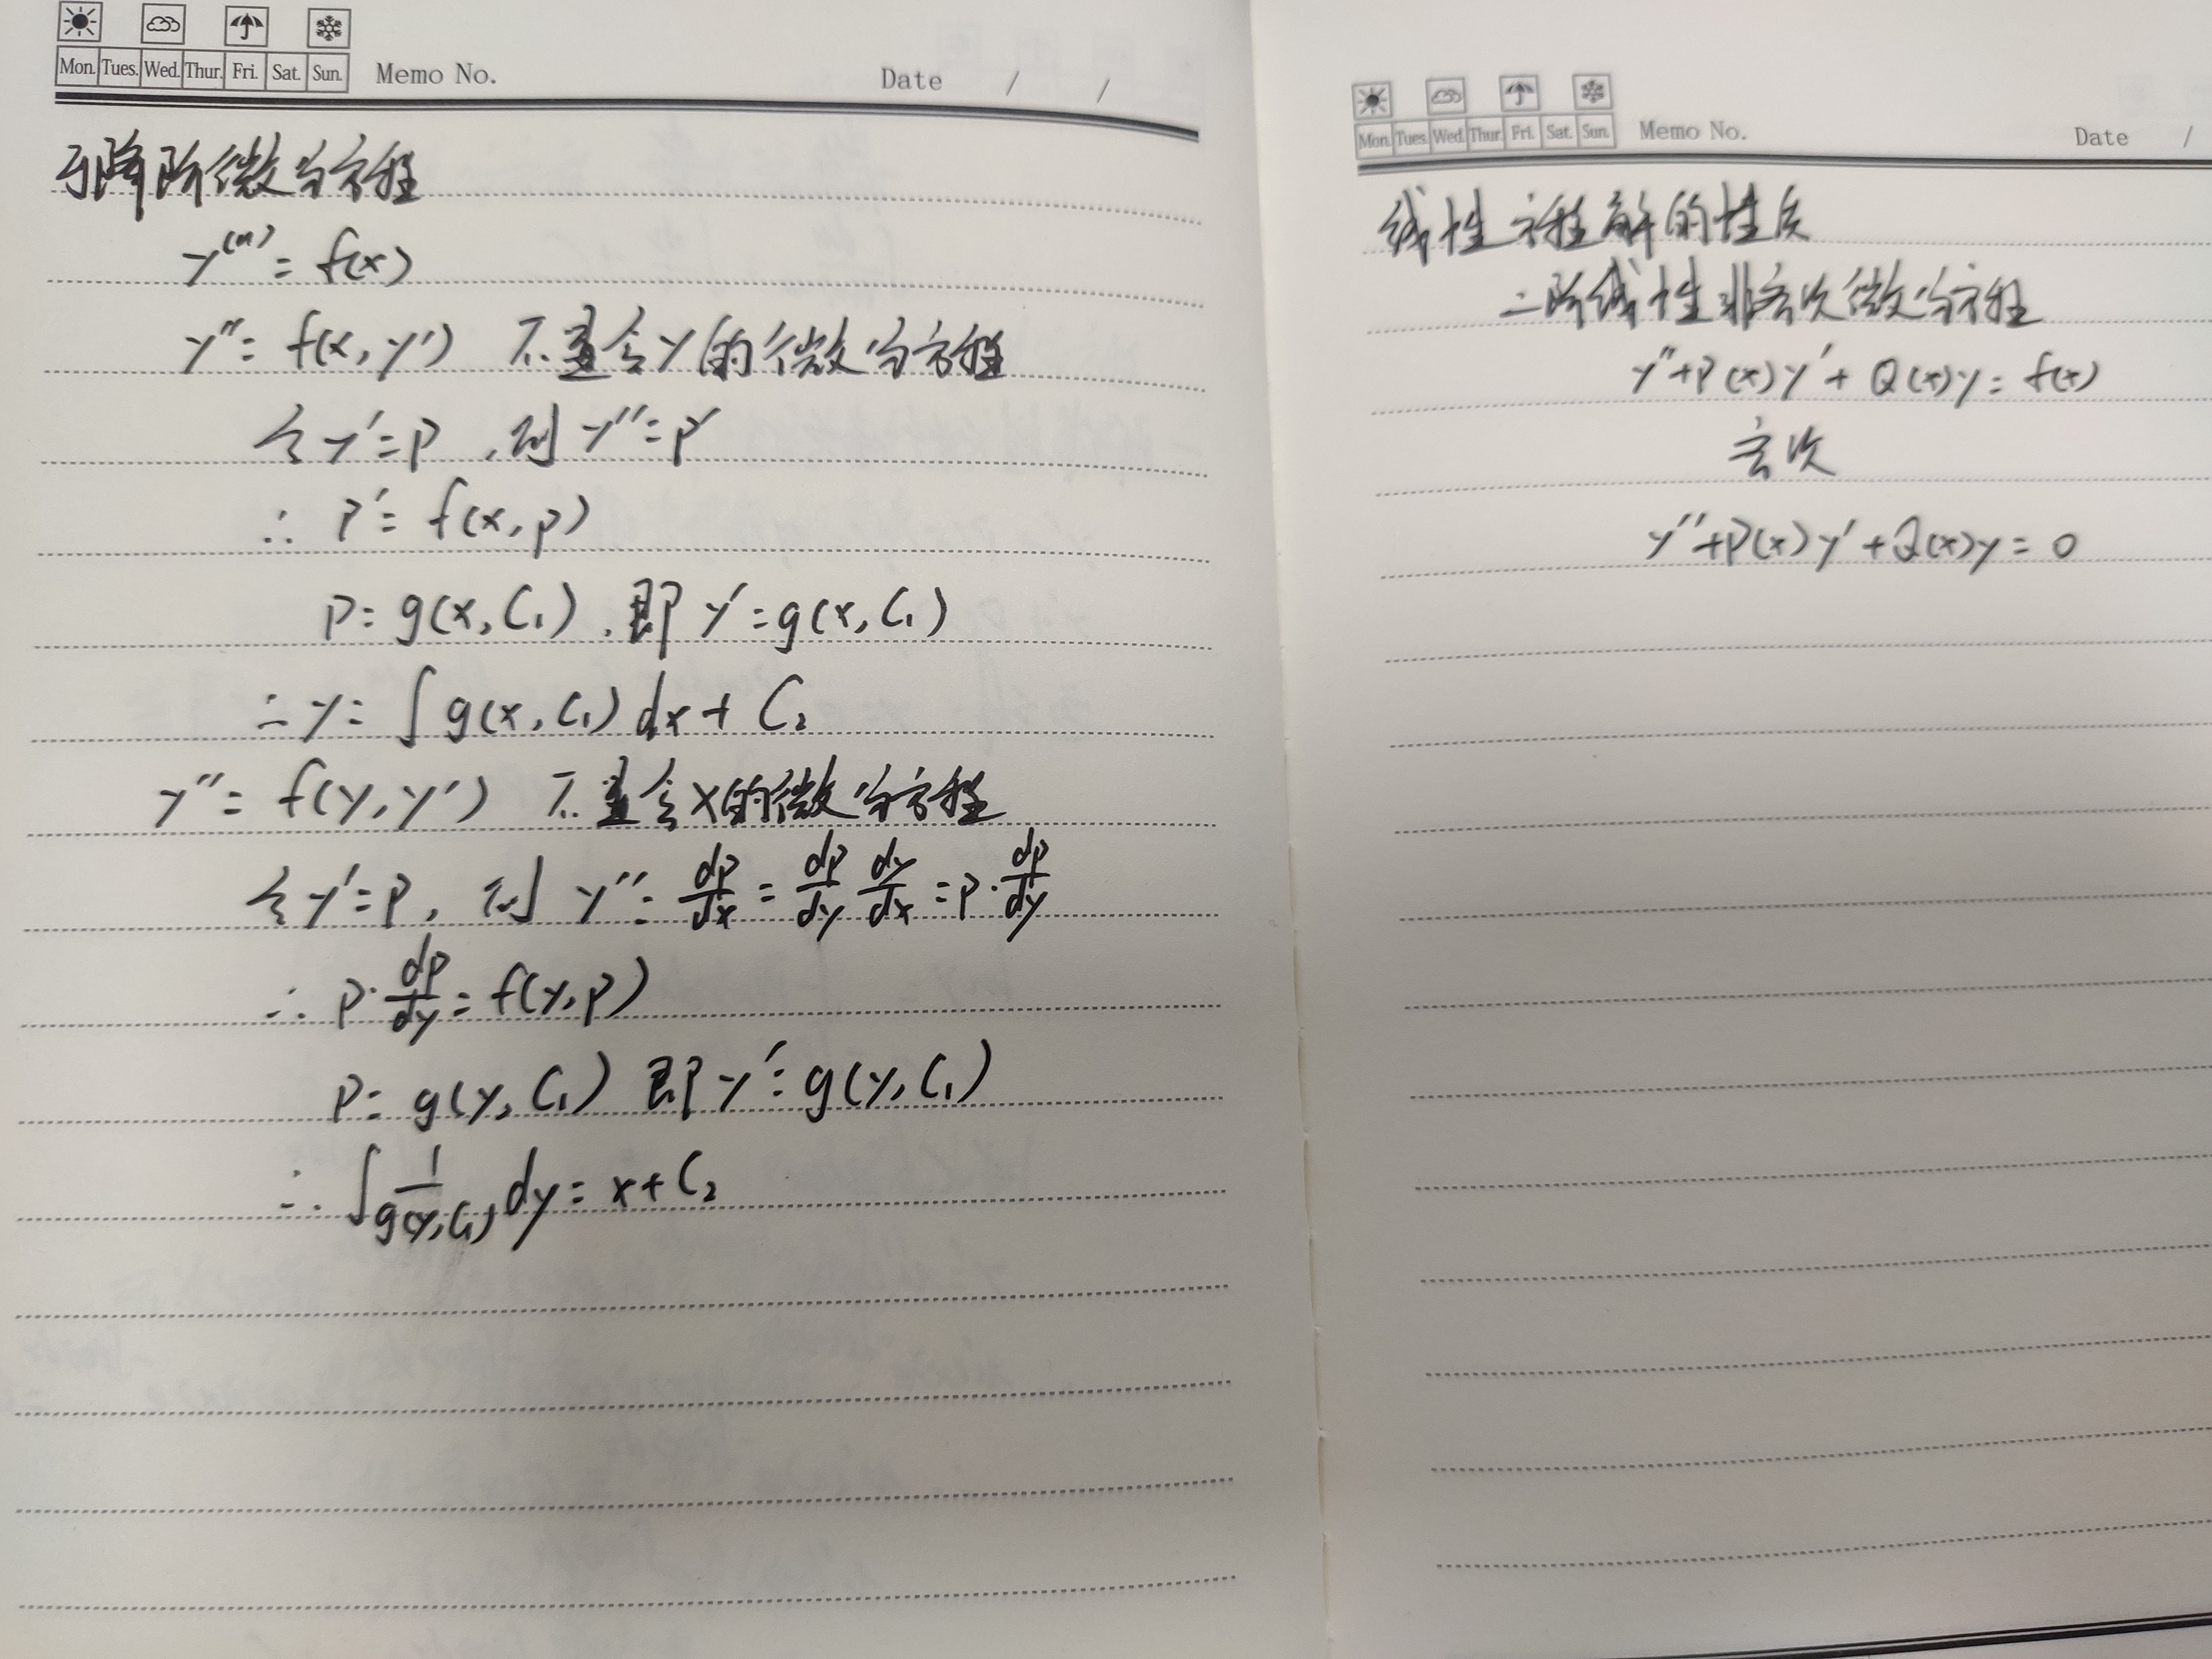 Mon. Tues. Wed. Thur. Fri. Sat. Sun. Memo No. Date / /
可降阶微分方程
y⁽ⁿ⁾ = f(x)
y'' = f(x, y') 不显含y的微分方程
令 y' = p , 则 y'' = p'
∴ p' = f(x, p)
p = g(x, C₁) , 即 y' = g(x, C₁)
∴ y = ∫ g(x, C₁) dx + C₂
y'' = f(y, y') 不显含x的微分方程
令 y' = p , 则 y'' = dp/dx = dp/dy dy/dx = p · dp/dy
∴ p · dp/dy = f(y, p)
p = g(y, C₁) 即 y' = g(y, C₁)
∴ ∫ 1/g(y, C₁) dy = x + C₂
Mon. Tues. Wed. Thur. Fri. Sat. Sun. Memo No. Date /
线性方程解的性质
二阶线性非齐次微分方程
y'' + P(x)y' + Q(x)y = f(x)
齐次
y'' + P(x)y' + Q(x)y = 0